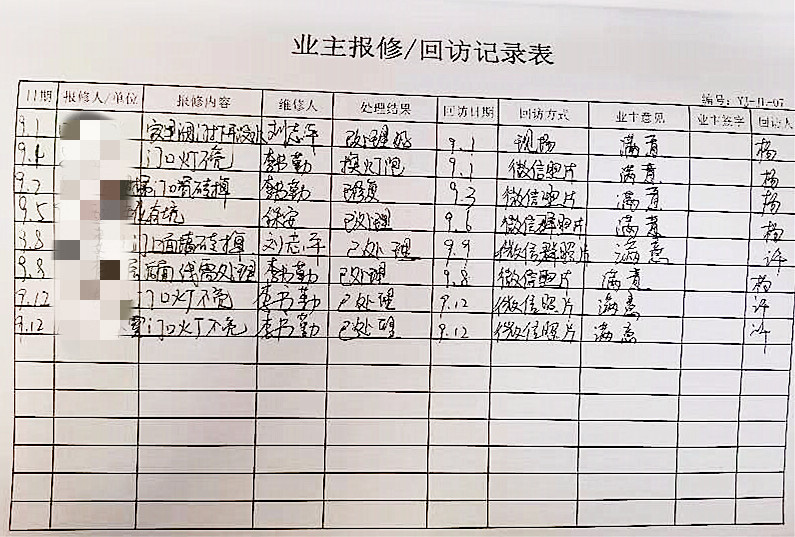 业主报修/回访记录表
编号: YJ-JL-07
日期 报修人/单位 报修内容 维修人 处理结果 回访日期 回访方式 业主意见 业主签字 回访人
9.1 刘志军 已处理好 9.1 现场 满意 杨
9.1 门口灯不亮 李书勤 换灯泡 9.1 微信照片 满意 杨
门口瓷砖掉 李书勤 修复 9.3 微信照片 满意 杨
9.5 有坑 保安 已处理 9.6 微信群照片 满意 杨
9.8 门上面墙砖掉 刘志军 已处理 9.9 微信群照片 满意 许
9.8 李书勤 已处理 9.8 微信照片 满意 杨
9.12 门口灯不亮 李书勤 已处理 9.12 微信照片 满意 许
9.12 门口灯不亮 李书勤 已处理 9.12 微信照片 满意 许